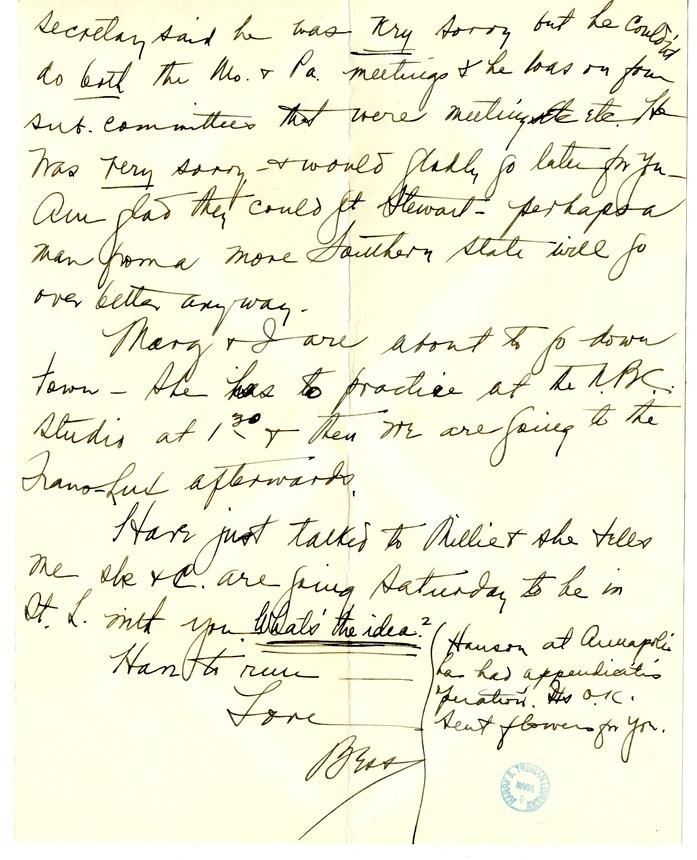 secretary said he was very sorry but he could'nt
do both the Mo. & Pa. meetings & he was on four
sub. committees that were meeting etc. He
was very sorry - & would gladly go later for you -
Am glad they could get Stewart - perhaps a
man from a more Southern state will go
over better anyway.
Marg & I are about to go down
town - She has to practice at the N.B.C.
Studio at 1:30 & then we are going to the
Trans-Lux afterwards.
Have just talked to Millie & she tells
me she & C. are going Saturday to be in
St. L. with you. What's the idea?
Have to run
Love
Bess
Hanson at Annapolis
has had appendicitis
operation. Is O.K.
Sent flowers for you.
HARRY S. TRUMAN LIBRARY
NARA